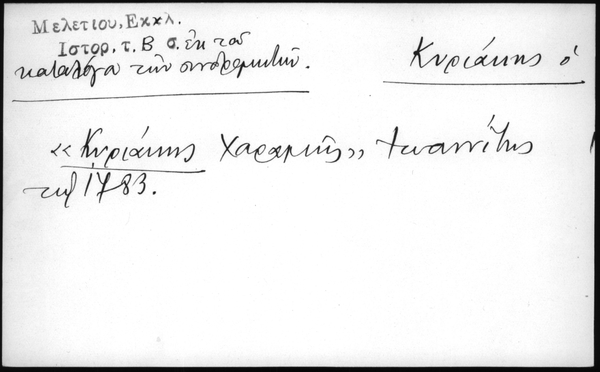 Μελετίου, Εκκλ.
Ιστορ, τ. Β σ. ἐκ τοῦ
καταλόγου τῶν συνδρομητῶν.
Κυριάκης ὁ
«Κυριάκης Χαραμῆς» Ἰωαννίτης
τῷ 1783.